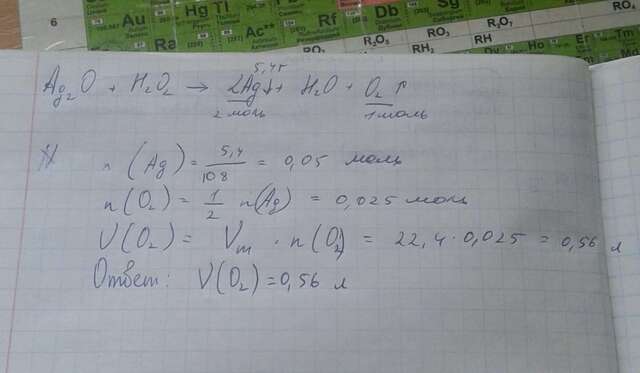 6
Au
Hg
Tl
Rf
Db
Sg
RO₄
Ra
Ac**
R₂O₅
R₂O₇
RO₄
RH₃
RH
Dy
Ho
Er
Tm
5,4г
Ag₂O + H₂O₂ → 2Ag↓ + H₂O + O₂ ↑
2 моль 1 моль
n (Ag) = 5,4/108 = 0,05 моль
n(O₂) = 1/2 n(Ag) = 0,025 моль
V(O₂) = Vm · n(O₂) = 22,4 · 0,025 = 0,56 л
Ответ: V(O₂) = 0,56 л